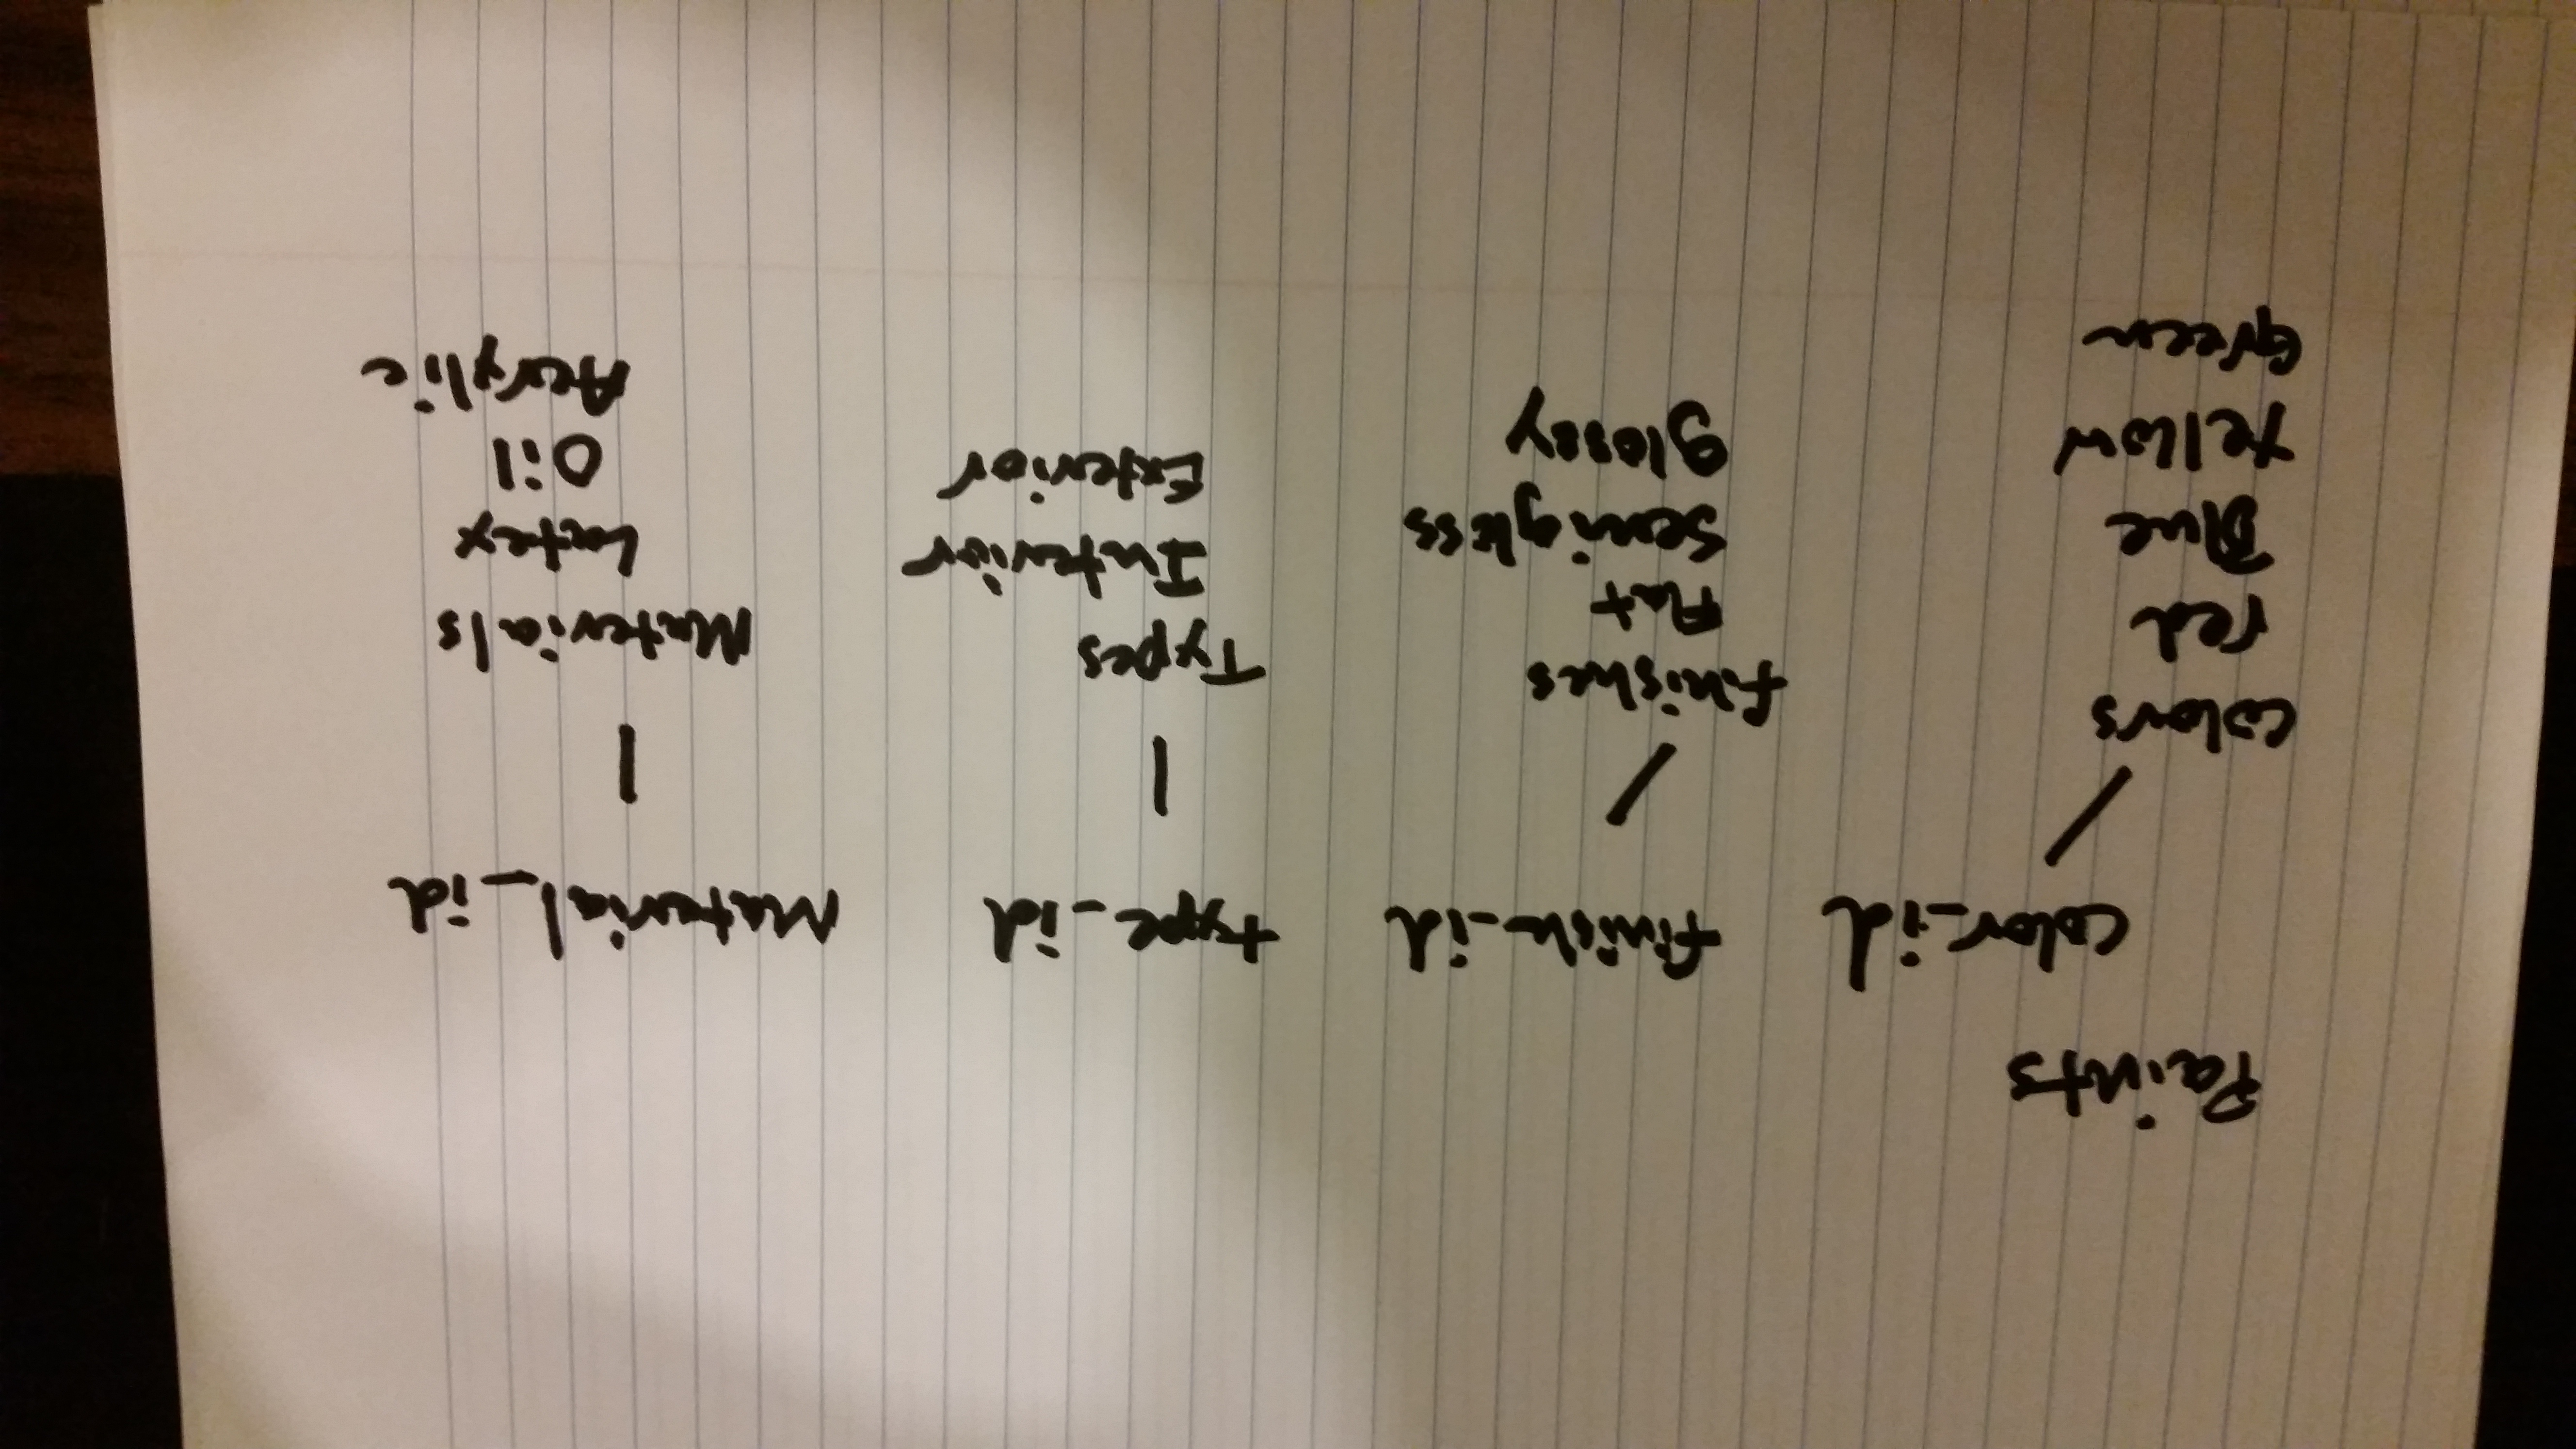 Paints
color_id finish_id type_id Material_id
colors
red
Blue
Yellow
Green
finishes
Flat
Semigloss
Glossy
Types
Interior
Exterior
Materials
Latex
Oil
Acrylic